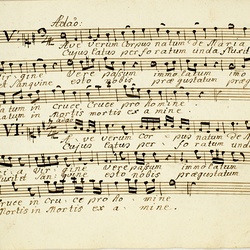 V. Adão:
Ave verum Corpus natum de Maria
Cujus latus perforatum unda fluxit
Vir gine Vere passum immolatum
Sanguine esto nobis praegustatum
natum in Cruce Cruce pro homine.
natum in Mortis mortis ex a mine.
VI. Ave verum Corpus natum de M
Cujus latus perforatum un
ri a Vir gine Vere passum immolatum
fluxit et Sanguine esto nobis praegustatum
Cruce in Cru ce pro ho mine.
Mortis in Mortis ex a mine.